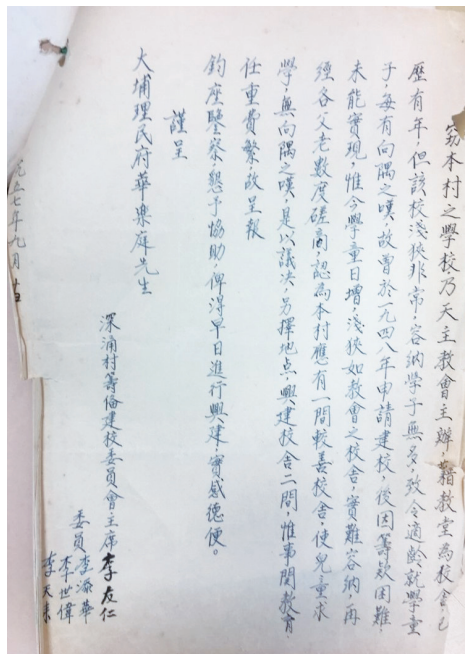 窃本村之學校乃天主教會主辦，藉教堂為校舍已
歷有年，但該校淺狹非常，容納學子無多，致令適齡就學童
子，每有向隅之嘆，故曾於一九四八年申請建校，後因籌欵困難，
未能實現，惟今學童日增，淺狹如教會之校舍，實難容納，再
經各父老數度磋商，認為本村應有一間較善校舍，使兒童求
學，無向隅之嘆，是以議決，另擇地点，興建校舍二間，惟事関教育，
任重費繁，故呈報
鈞座鑒察，懇予協助，俾得早日進行興建，實感德便。
謹呈
大埔理民府華樂庭先生
深涌村籌俻建校委員會主席 李友仁
委員 李添華
李世偉
李天來
五七年九月廿